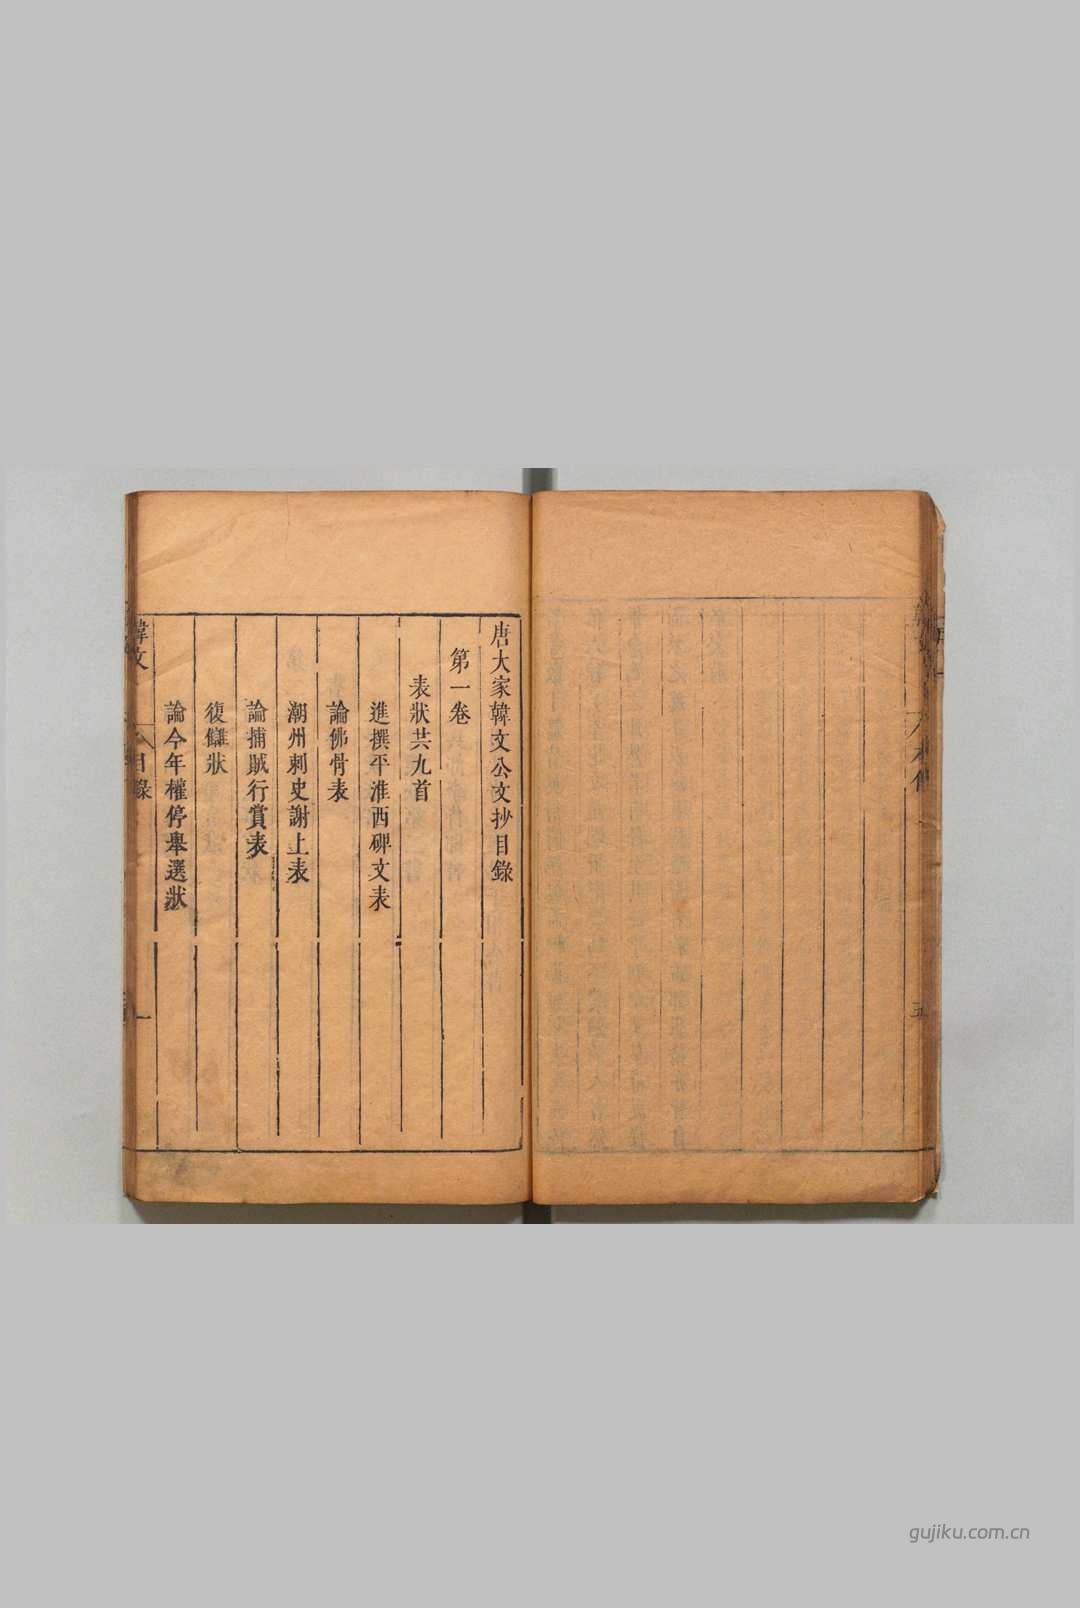 唐大家韓文公文抄目錄
第一卷
表狀共九首
進撰平淮西碑文表
論佛骨表
潮州刺史謝上表
論捕賊行賞表
復讎狀
論今年權停舉選狀
韓文
目錄
一
本傳
五
gujiku.com.cn